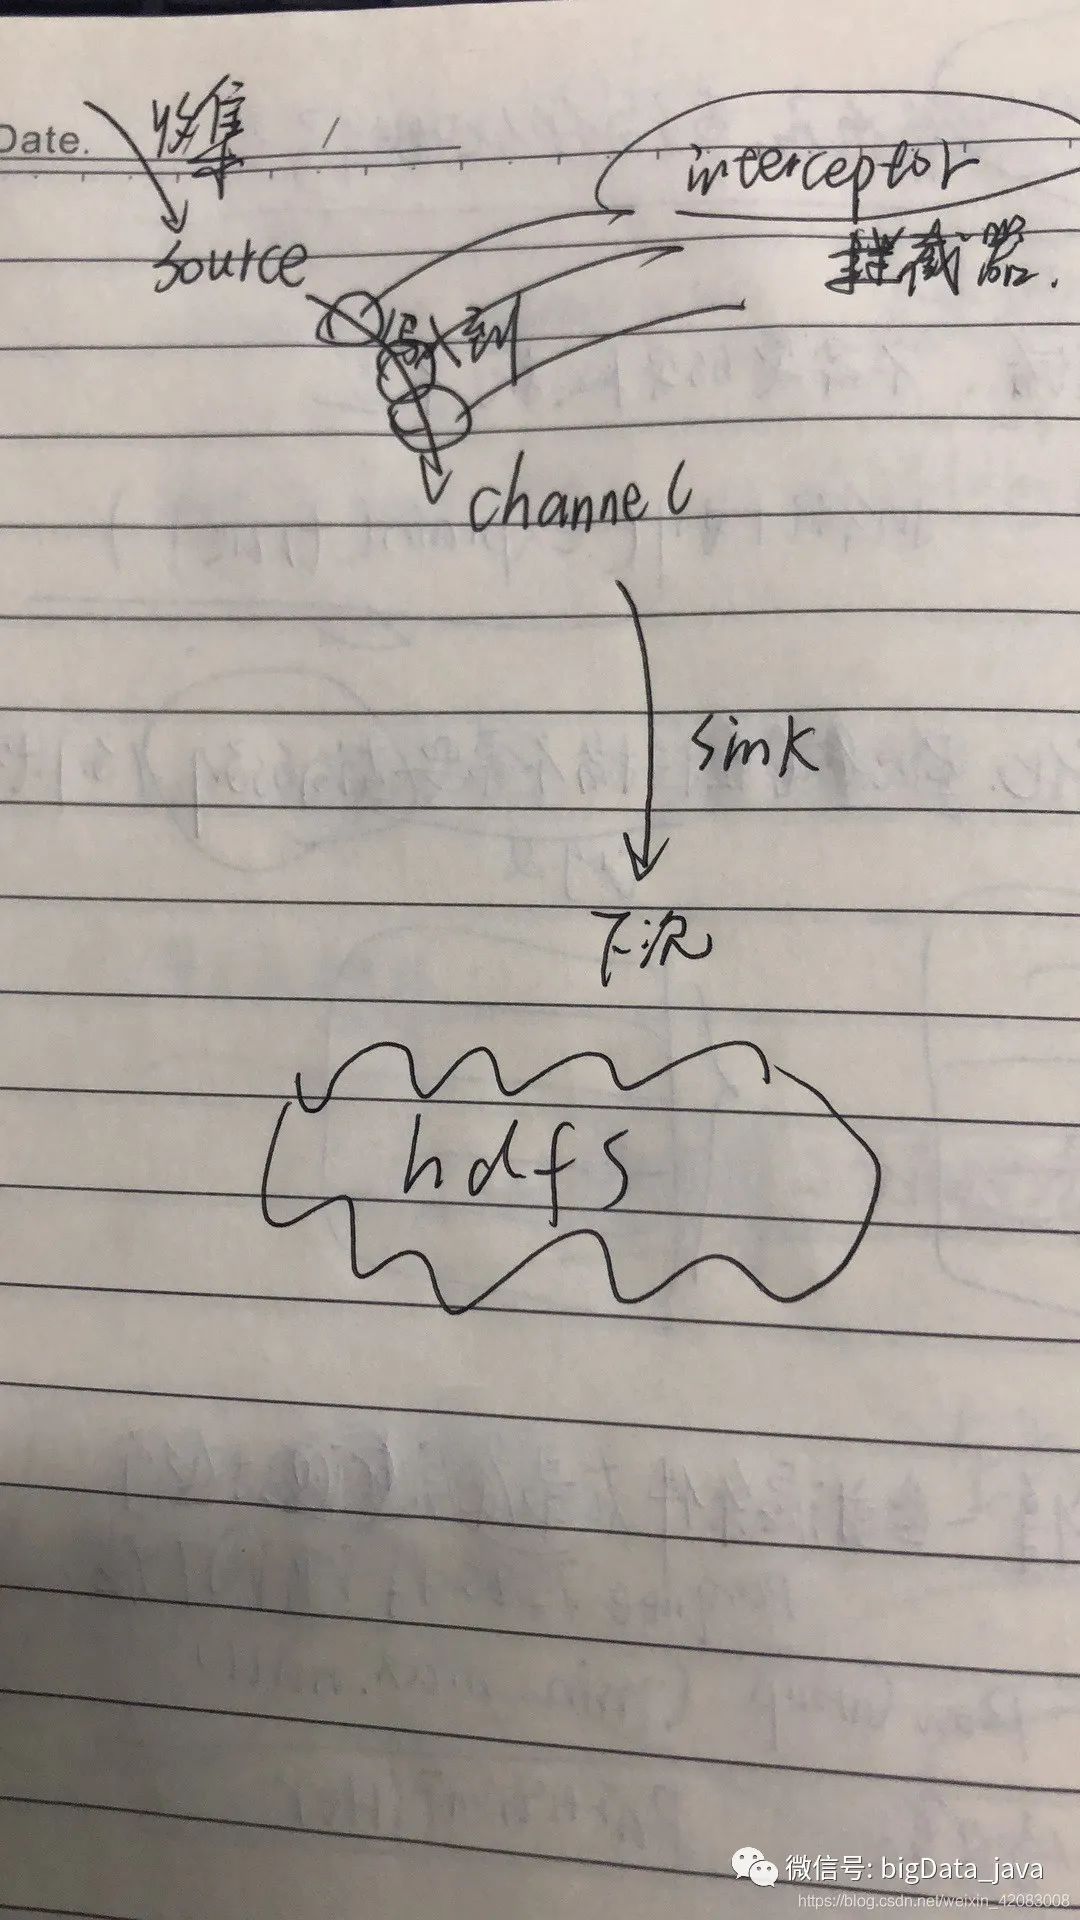 Date.
收集
interceptor
拦截器.
source
写入到
channel
sink
下沉
hdfs
微信号: bigData_java
https://blog.csdn.net/weixin_42083008